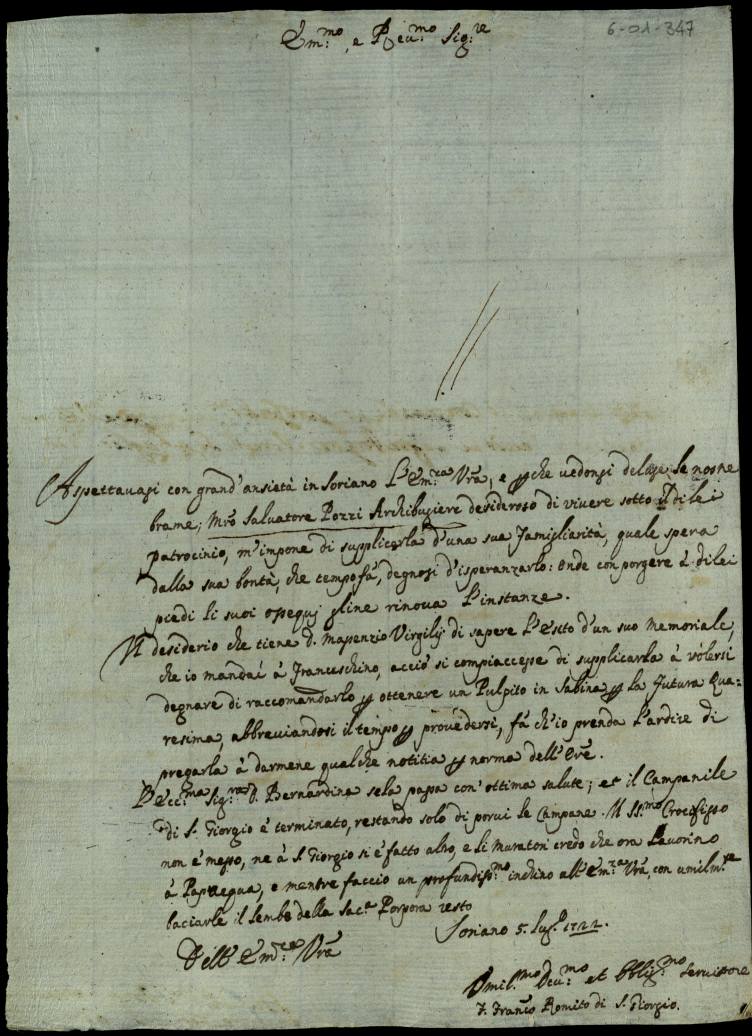 6-01-347
Em:mo, e Reu:mo Sig:re
Aspettauasi con grand'ansietà in Soriano l'Em:za Vrã, e p che uedonsi deluse le nostre
brame, Mrõ Saluatore Pozzi Archibugiere desideroso di viuere sotto il di lei
patrocinio, m'impone di supplicarla d'una sua famigliarità, quale spera
dalla sua bontà, che tempo fà, degnosi d'isperanzarlo: onde con porgere à di lei
piedi li suoi ossequij gline rinoua l'instanze.
Il desiderio che tiene D. Massenzio Virgilij di sapere l'esito d'un suo memoriale,
che io mandai à Franceschino, acciò si compiacesse di supplicarla à volersi
degnare di raccomandarlo p ottenere un Pulpito in Sabina p la futura Qua=
resima, abbreuiandosi il tempo p prouedersi, fà ch'io prenda l'ardire di
pregarla à darmene qualche notitia p norma dell'Orẽ.
L'Ecc:ma Sig:ra D. Bernardina se la passa con' ottima salute; et il Campanile
di S. Giorgio è terminato, restando solo di porui le Campane. Il SS:mo Crocifisso
non è messo, ne à S. Giorgio si è fatto altro, e li Muratori credo che ora lauorino
à Papacqua, e mentre faccio un profundiss:mo inchino all'Em:za Vrã, con umilm:te
baciarle il lembo della Sac:a Porpora resto
Soriano 5. lug:o 1722.
Dell'Em:za Vrã
Umil:mo Deu:mo et Obblig:mo Seruitore
F. Franco Romito di S. Giorgio.